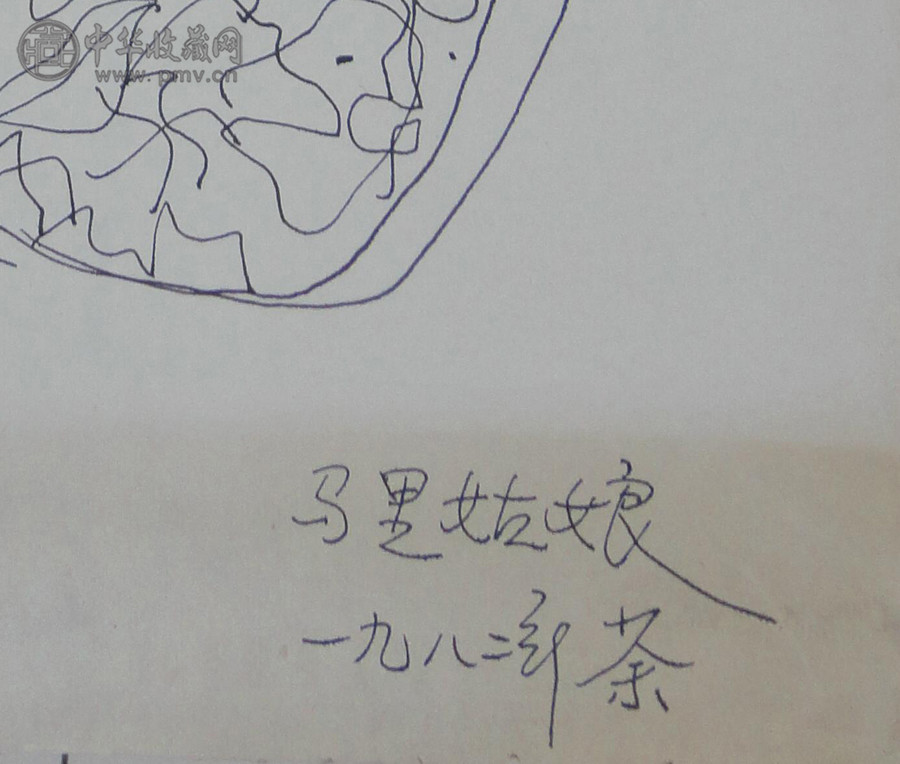 中华收藏网
www.pmv.cn
马里姑娘
一九八二年 茶